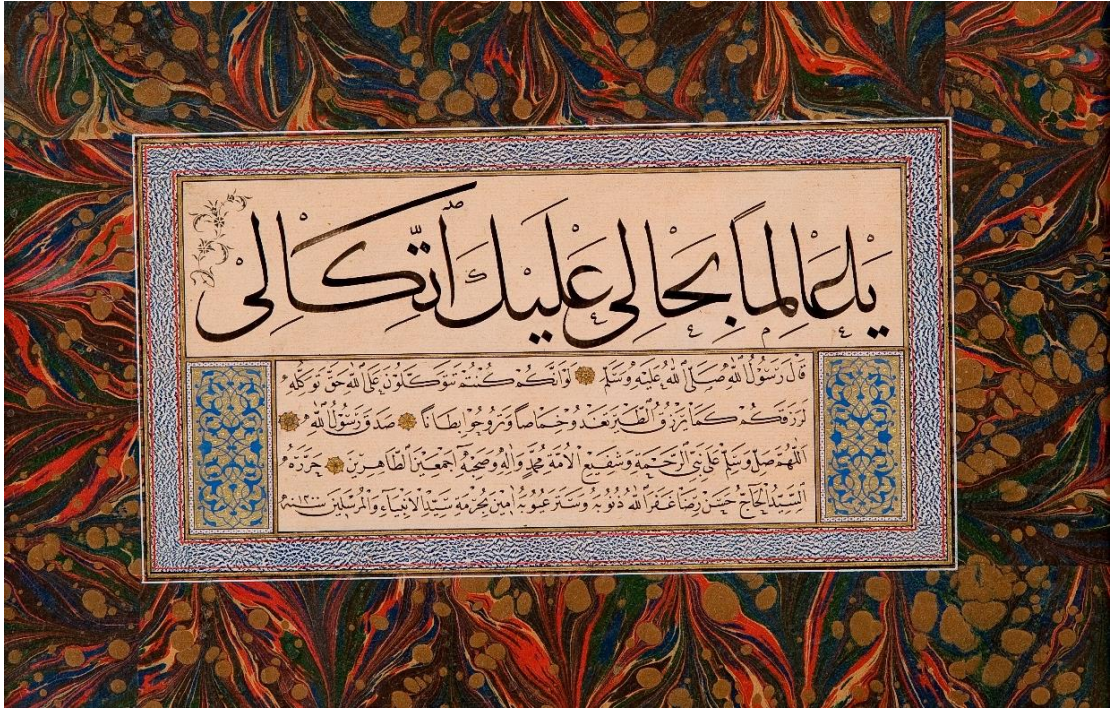 يَا عَالِمًا بِحَالِي عَلَيْكَ اتِّكَالِي
قَالَ رَسُولُ اللهِ صَلَّى اللهُ عَلَيْهِ وَسَلَّمَ لَوْ أَنَّكُمْ كُنْتُمْ تَتَوَكَّلُونَ عَلَى اللهِ حَقَّ تَوَكُّلِهِ
لَرَزَقَكُمْ كَمَا يَرْزُقُ الطَّيْرَ تَغْدُو خِمَاصًا وَتَرُوحُ بِطَانًا صَدَقَ رَسُولُ اللهِ
اللَّهُمَّ صَلِّ وَسَلِّمْ عَلَى نَبِيِّ الرَّحْمَةِ وَشَفِيعِ الْأُمَّةِ مُحَمَّدٍ وَآلِهِ وَصَحْبِهِ أَجْمَعِينَ الطَّاهِرِينَ حَرَّرَهُ
السَّيِّدُ الْحَاجّ حَسَن رِضَا غَفَرَ اللهُ ذُنُوبَهُ وَسَتَرَ عُيُوبَهُ آمِينَ بِحُرْمَةِ سَيِّدِ الْأَنْبِيَاءِ وَالْمُرْسَلِينَ سنة ١٣٠٠